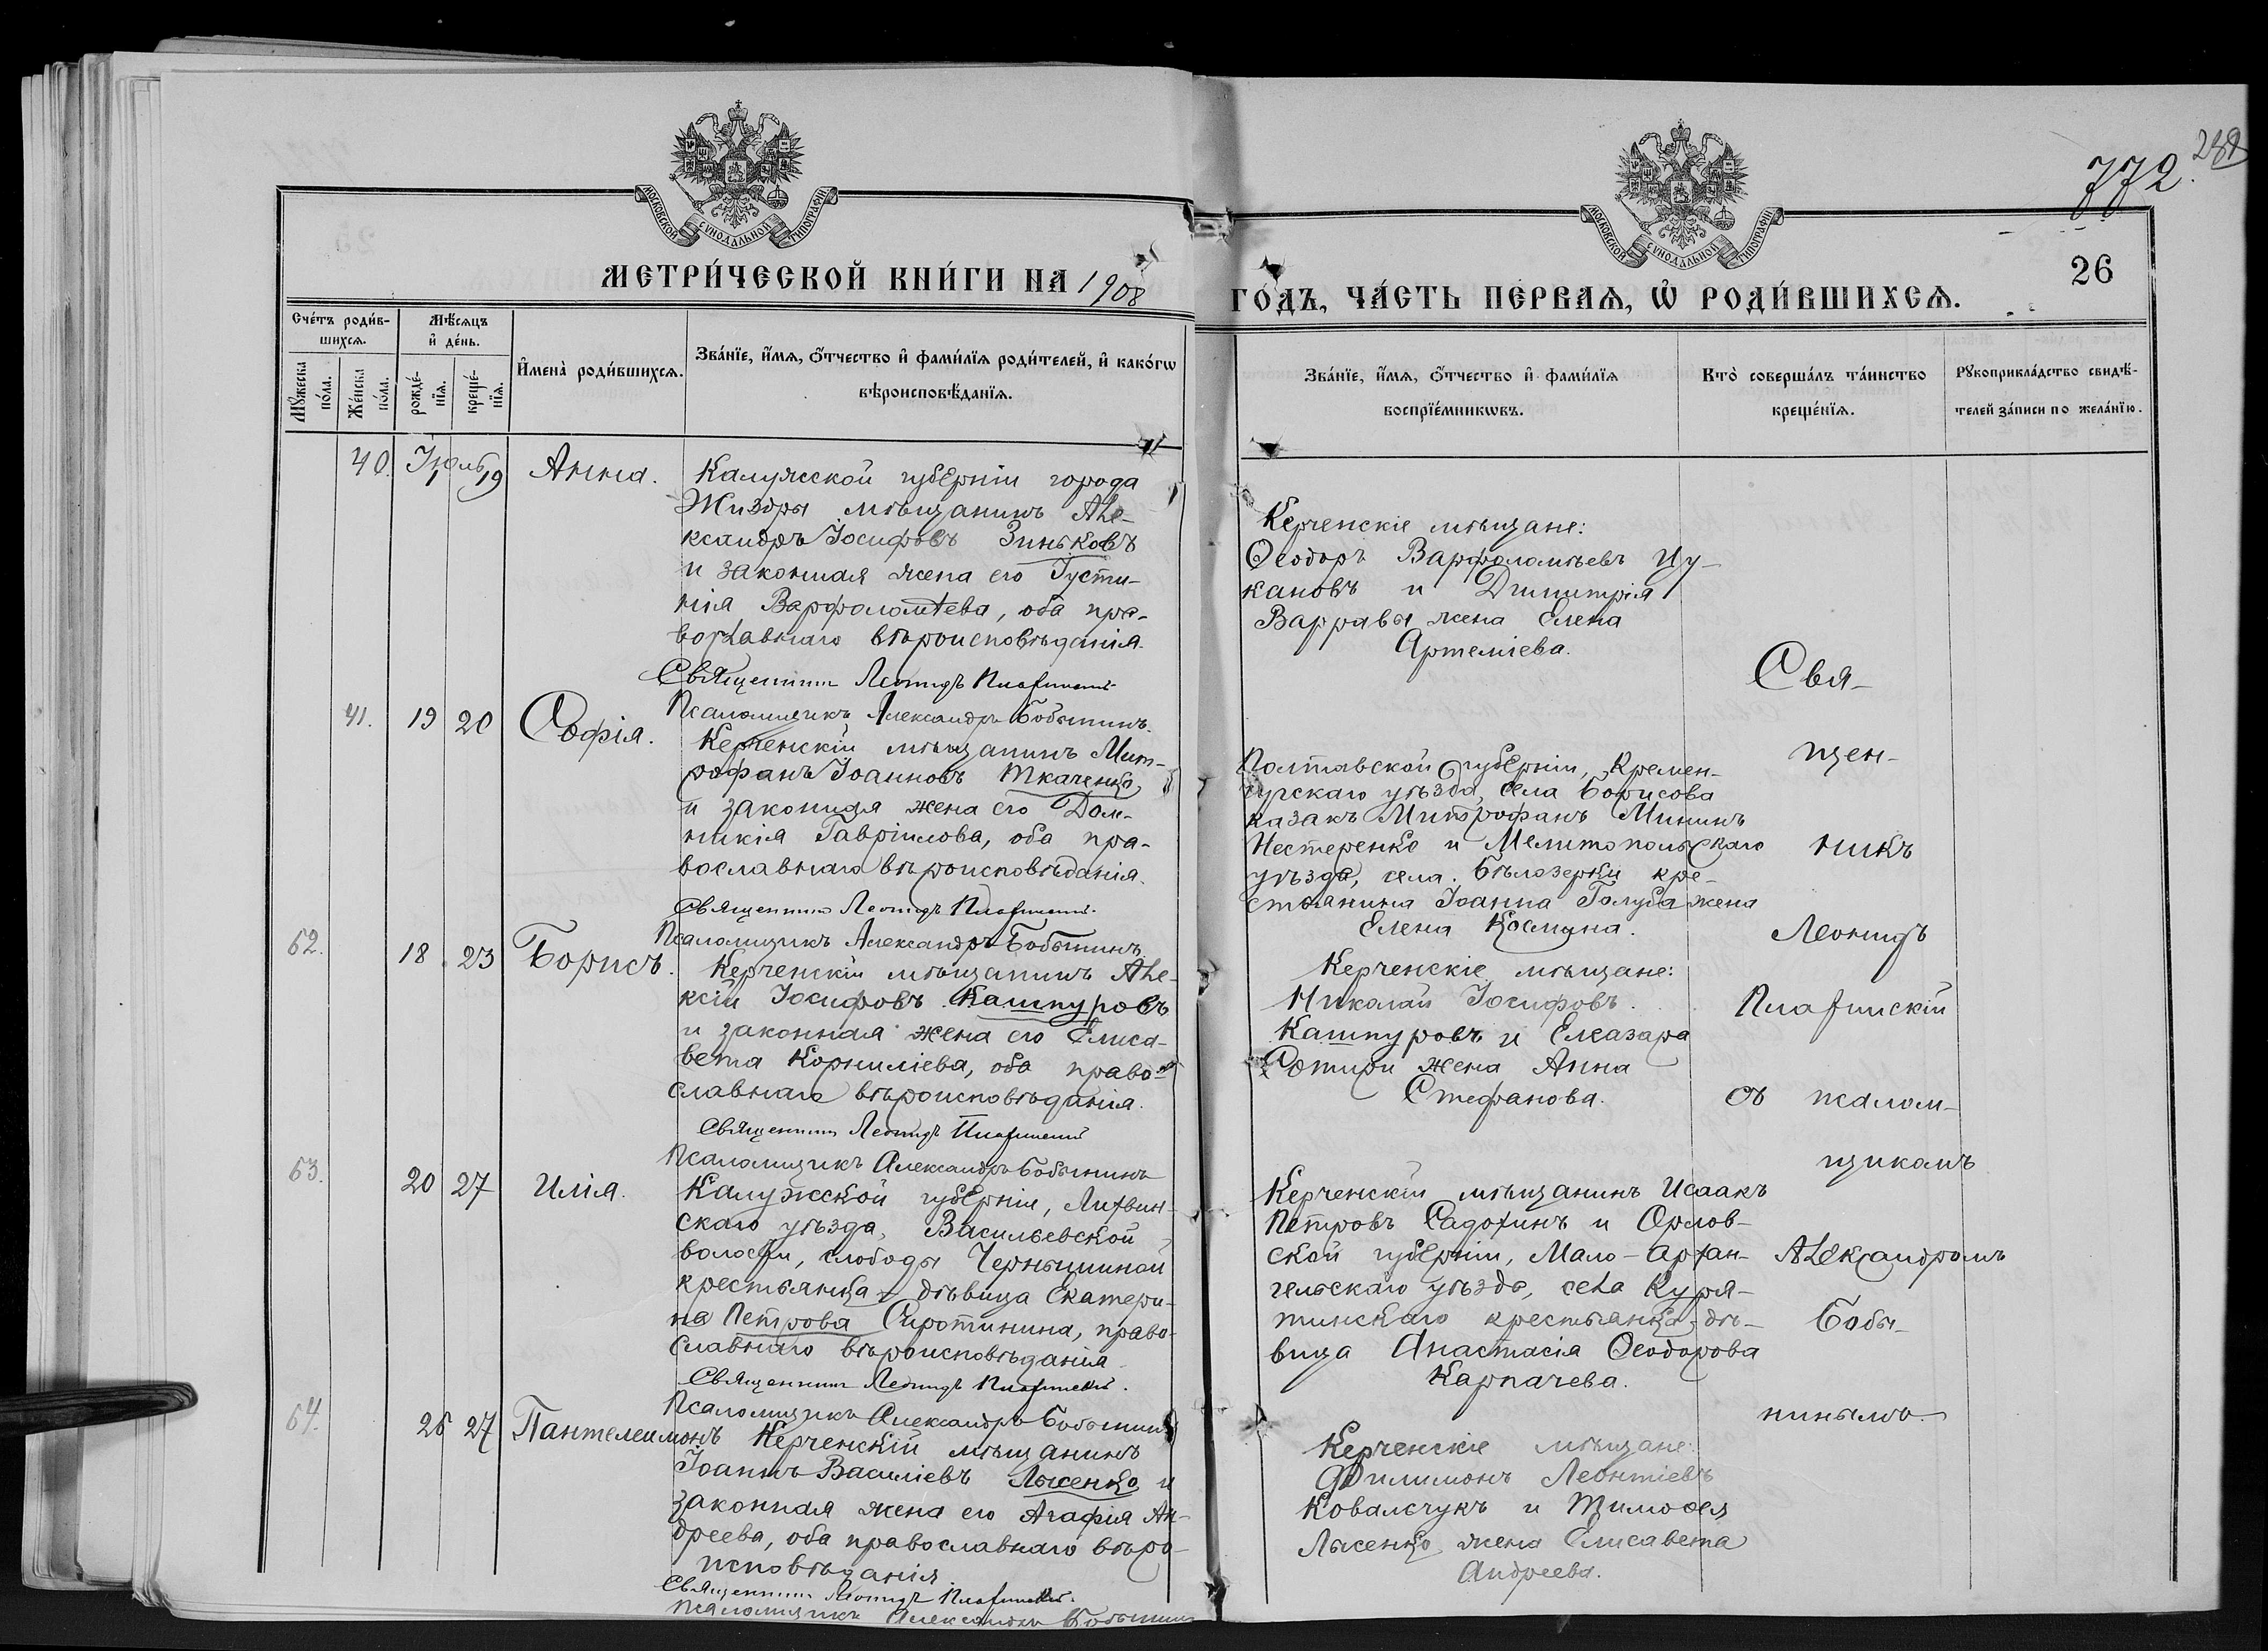 772.
МОСКОВСКОЙ СУНОДАЛЬНОЙ ТИПОГРАФІИ
МОСКОВСКОЙ СУНОДАЛЬНОЙ ТИПОГРАФІИ
МЕТРИ́ЧЕСКОЙ КНИ́ГИ НА 1908
ГО́ДЪ, ЧА́СТЬ ПЕ́РВАѦ, Ѡ҆ РОДИ́ВШИХСѦ.
26
Сче́тъ роди́в-
шихсѧ.
Мѣ́сѧцъ
и҆ де́нь.
Мꙋ́жеска
по́ла.
Же́нска
по́ла.
рожде́-
нїѧ.
креще́-
нїѧ.
И҆мена̀ роди́вшихсѧ.
Зва́нїе, и҆́мѧ, ѻ҆́тчество и҆ фами́лїѧ роди́телей, и҆ како́гѡ
вѣроисповѣ́данїѧ.
Зва́нїе, и҆́мѧ, ѻ҆́тчество и҆ фами́лїѧ
воспрїе́мникѡвъ.
Кто̀ соверша́лъ та́инство
креще́нїѧ.
Рꙋкоприкла́дство свидѣ́-
телей за́писи по жела́нїю.
40. Іюль
1 19 Анна.
Калужской губерніи города
Жиздры мѣщанинъ Але-
ксандръ Іосифовъ Зиньковъ
и законная жена его Іусти-
нія Варфоломѣева, оба пра-
вославнаго вѣроисповѣданія.
Священникъ Леонидъ
Псаломщикъ Александръ Бобынинъ.
Керченскіе мѣщане:
Ѳеодоръ Варфоломѣевъ Цу-
кановъ и Димитрія
Варравы жена Елена
Артеміева.
41. 19 20 Софія.
Керченскій мѣщанинъ Мит-
рофанъ Іоанновъ Ткаченко,
и законная жена его Дом-
никія Гавріилова, оба пра-
вославнаго вѣроисповѣданія.
Священникъ Леонидъ
Псаломщикъ Александръ Бобынинъ.
Полтавской губерніи, Кремен-
чугскаго уѣзда, села Борисова
казакъ Митрофанъ Мининъ
Нестеренко и Мелитопольскаго
уѣзда, села Бѣлозерки кре-
стьянина Іоанна Голуба жена
Елена Космина.
52. 18 23 Борисъ.
Керченскій мѣщанинъ Але-
ксій Іосифовъ Кашпуровъ
и законная жена его Елиса-
вета Корниліева, оба право-
славнаго вѣроисповѣданія.
Священникъ Леонидъ
Псаломщикъ Александръ Бобынинъ
Керченскіе мѣщане:
Николай Іосифовъ
Кашпуровъ и Елеазара
Сотири жена Анна
Стефанова.
53. 20 27 Илія.
Калужской губерніи, Лихвин-
скаго уѣзда, Васильевской
волости, слободы Чернышиной
крестьянка - дѣвица Екатери-
на Петрова Сиротинина, право-
славнаго вѣроисповѣданія.
Священникъ Леонидъ
Псаломщикъ Александръ Бобынинъ
Керченскій мѣщанинъ Исаакъ
Петровъ Садохинъ и Орлов-
ской губерніи, Мало-Архан-
гельскаго уѣзда, села Куря-
тинскаго крестьянка, дѣ-
вица Анастасія Ѳеодорова
Карпачева.
54. 26 27 Пантелеимонъ
Керченскій мѣщанинъ
Іоаннъ Василіевъ Лысенко и
законная жена его Агафія Ан-
дреева, оба православнаго вѣро-
исповѣданія.
Священникъ Леонидъ
Псаломщикъ Александръ Бобынинъ
Керченскіе мѣщане:
Филимонъ Леонтіевъ
Ковальчукъ и Тимоѳея
Лысенко жена Елисавета
Андреева.
Свя-
щен-
никъ
Леонидъ
съ псалом-
щикомъ
Александромъ
Бобы-
нинымъ.